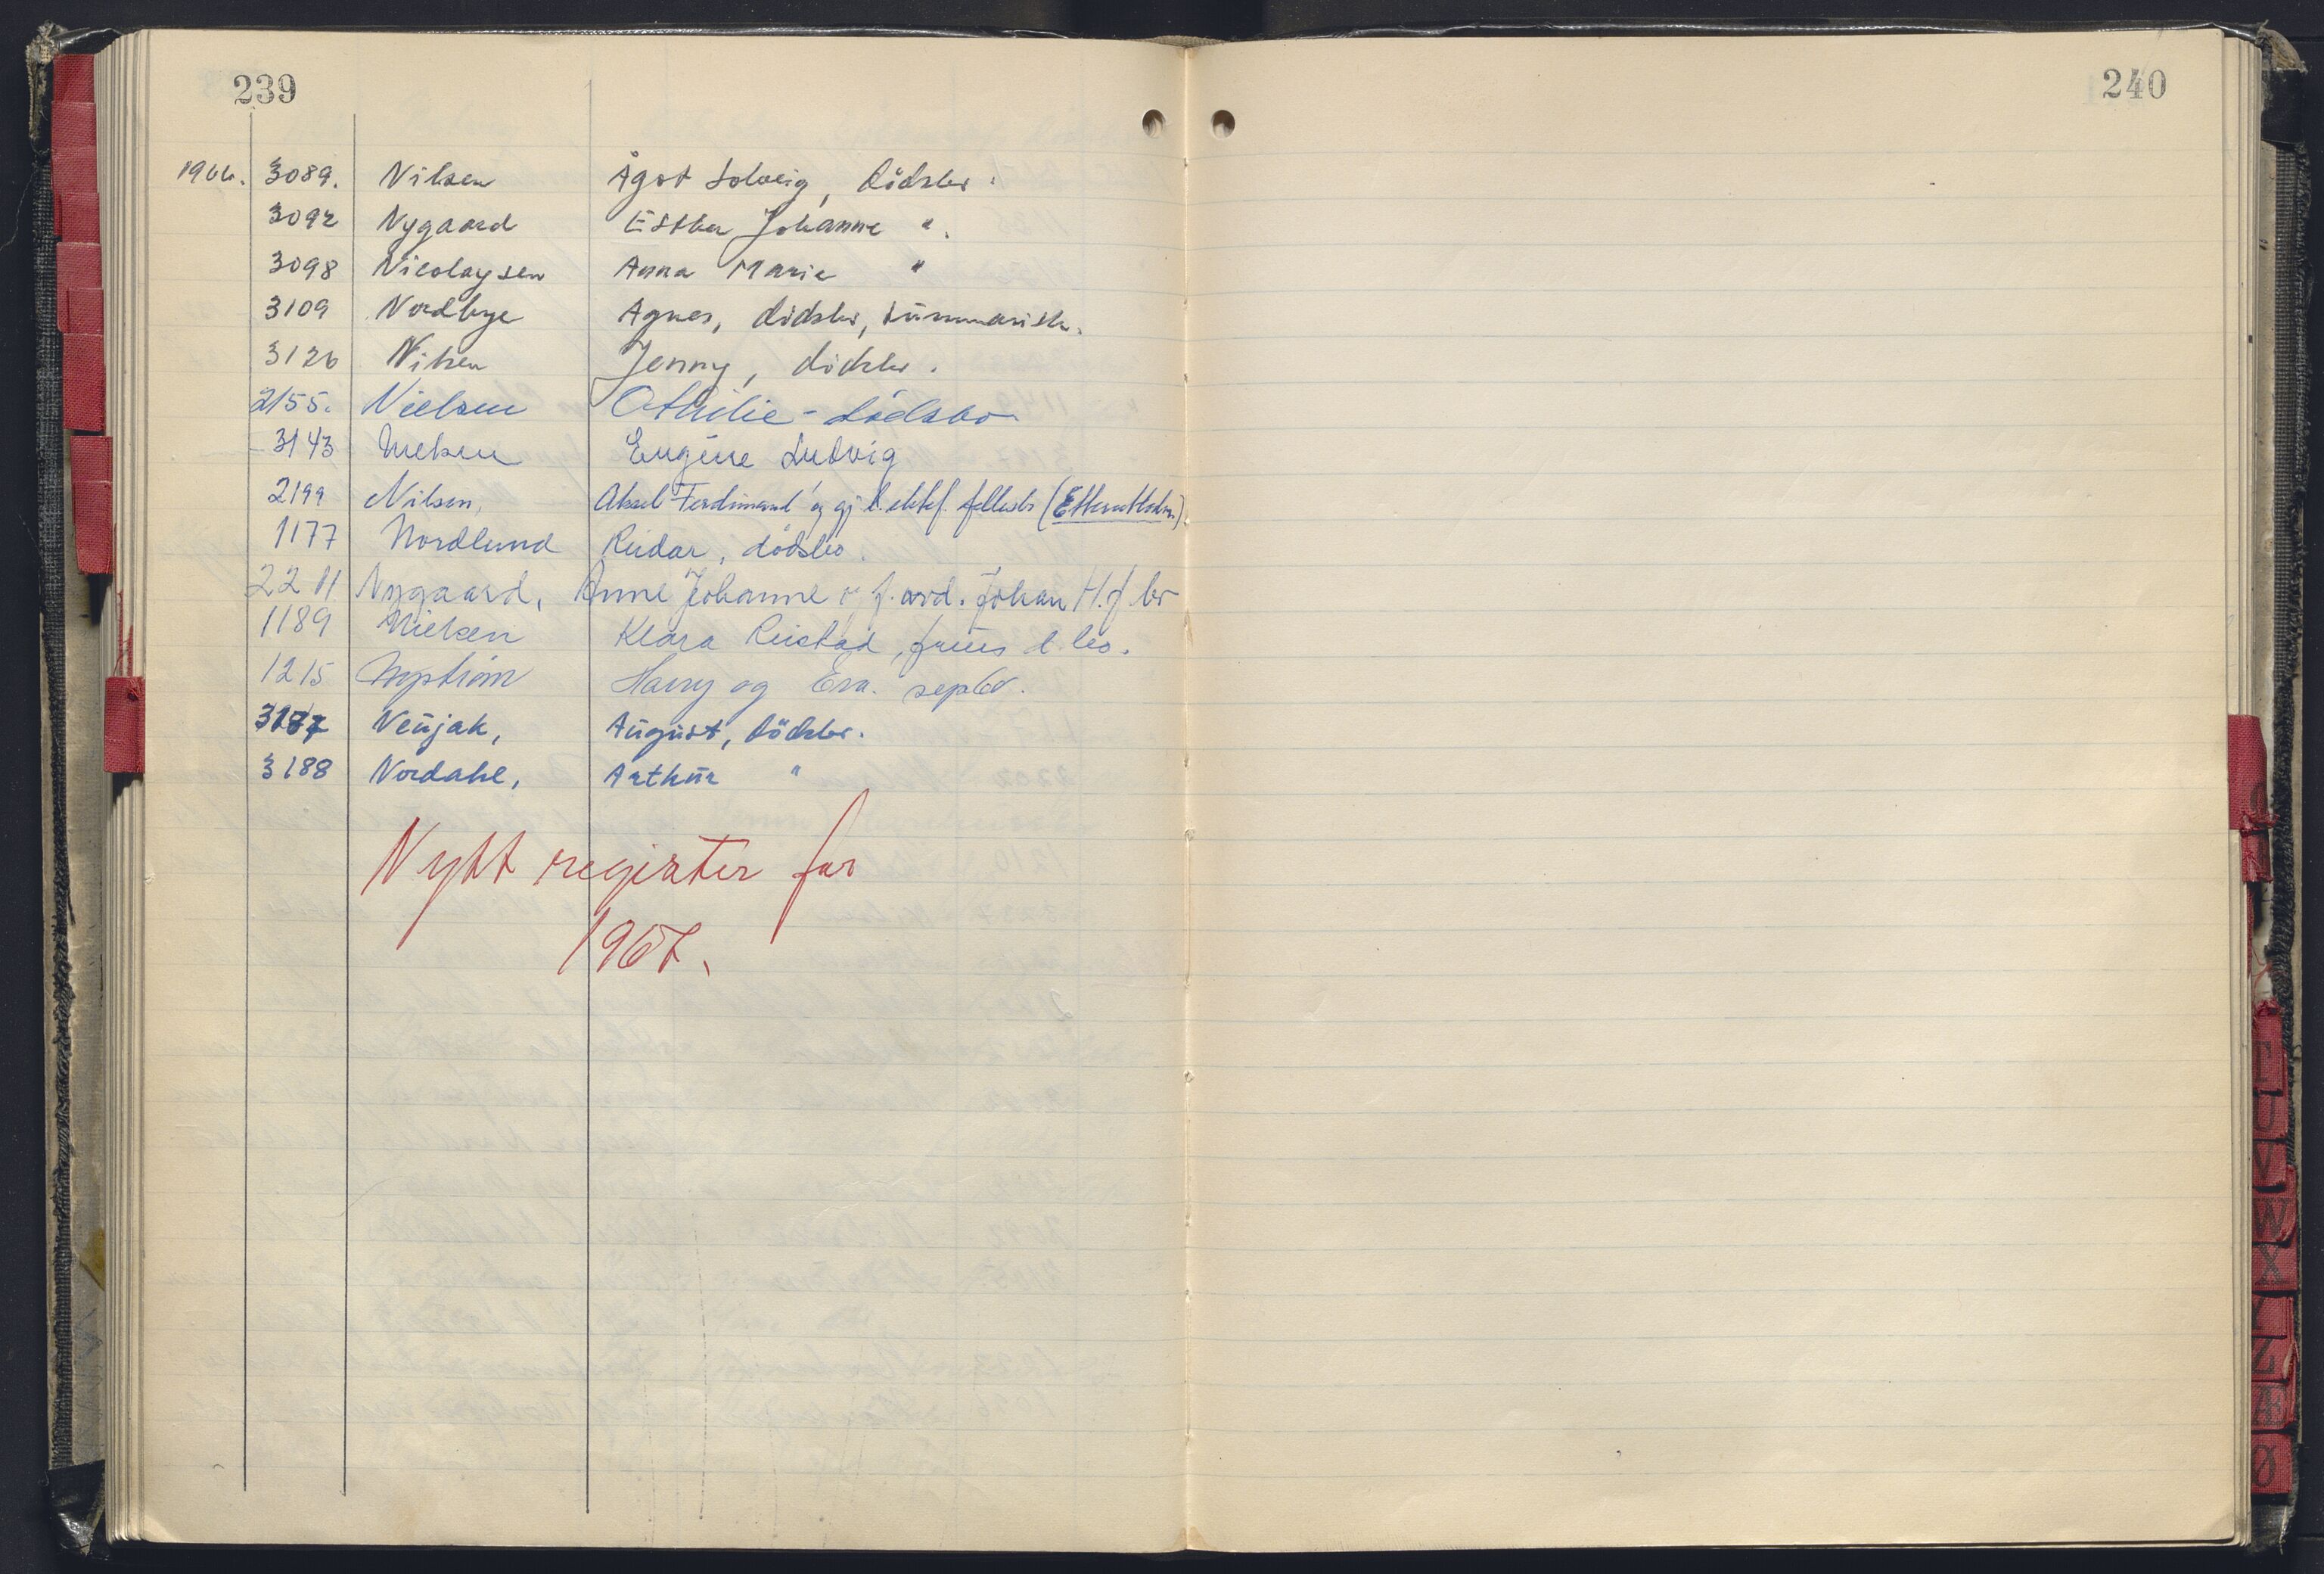 239
1966. 3089. Nilsen Ågot Solveig, dödsbo.
3092 Nygaard Esther Johanne ".
3098 Nicolaysen Anna Marie "
3109 Nordbye Agnes, dödsbo, summarisk.
3126 Nilsen Jenny, dödsbo.
2155. Nielsen Othilie - dödsbo
3143 Nielsen Eugéne Ludvig
2199 Nilsen, Aksel Ferdinand og gj.l. ektef. fellesbo (Etterutlodn.)
1177 Nordlund Reidar, dödsbo.
2211 Nygaard, Anne Johanne o f. avd. Johan H. f bo
1189 Nielsen Klara Reistad, frues d.bo.
1215 Nyström Harry og Eva. sepbo.
3187 Neujak, August, dödsbo.
3188 Nordahl, Arthur "
Nytt register for
1967.
240
T
U
V
W
X
Y
Z
Æ
Ø